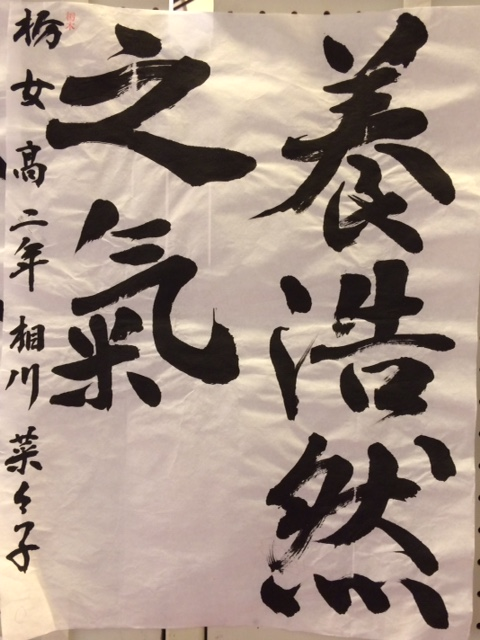 養浩然
之氣
栃女高二年 相川 菜々子